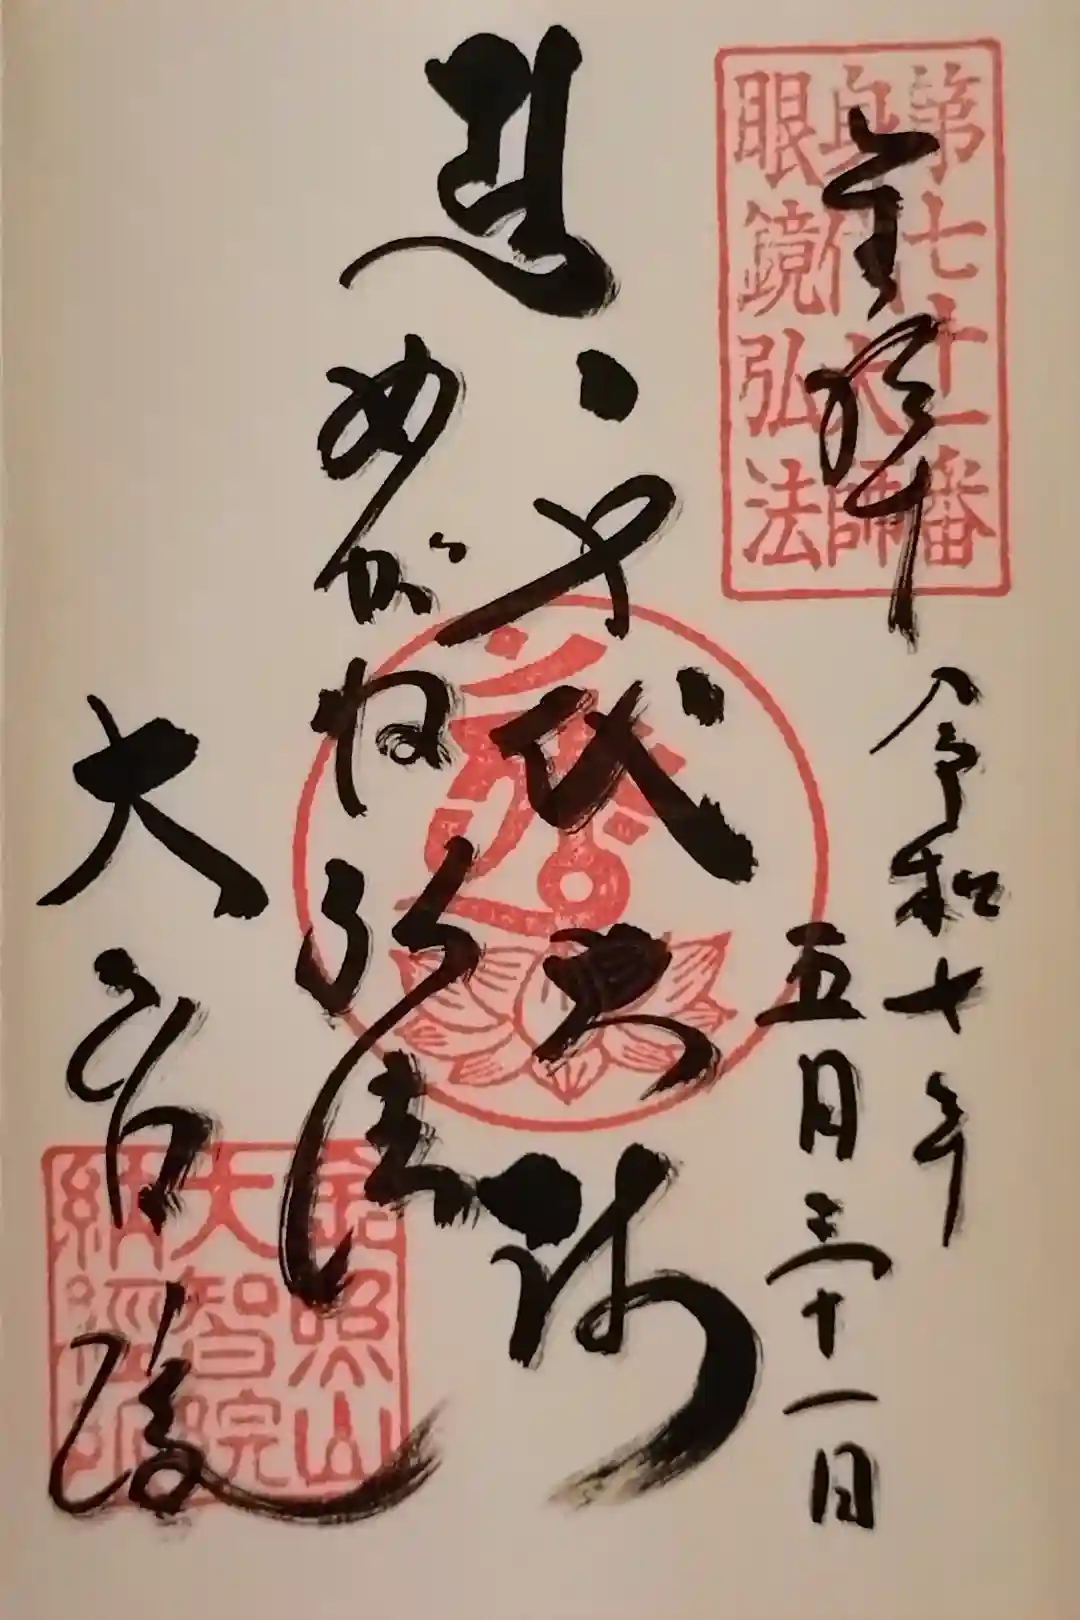 第七十一番
身代大師
眼鏡弘法
奉拝
令和七年
五月三十一日
身代大師
めがね弘法
大智院
金照山
大智院
納経印